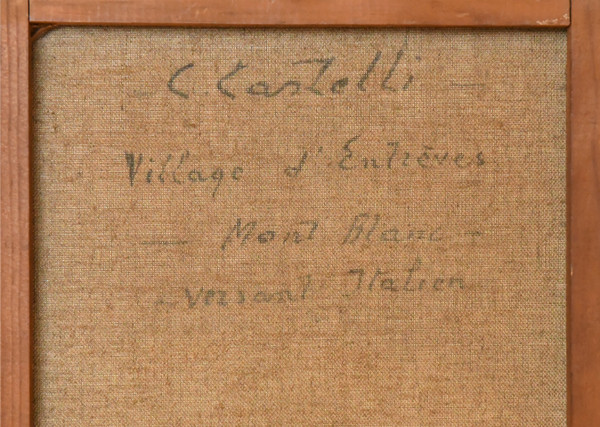 - C. Castelli -
Village d'Entrèves
- Mont Blanc -
- versant Italien